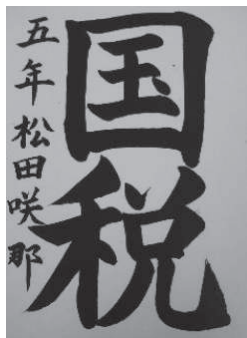 国税
五年 松田咲那